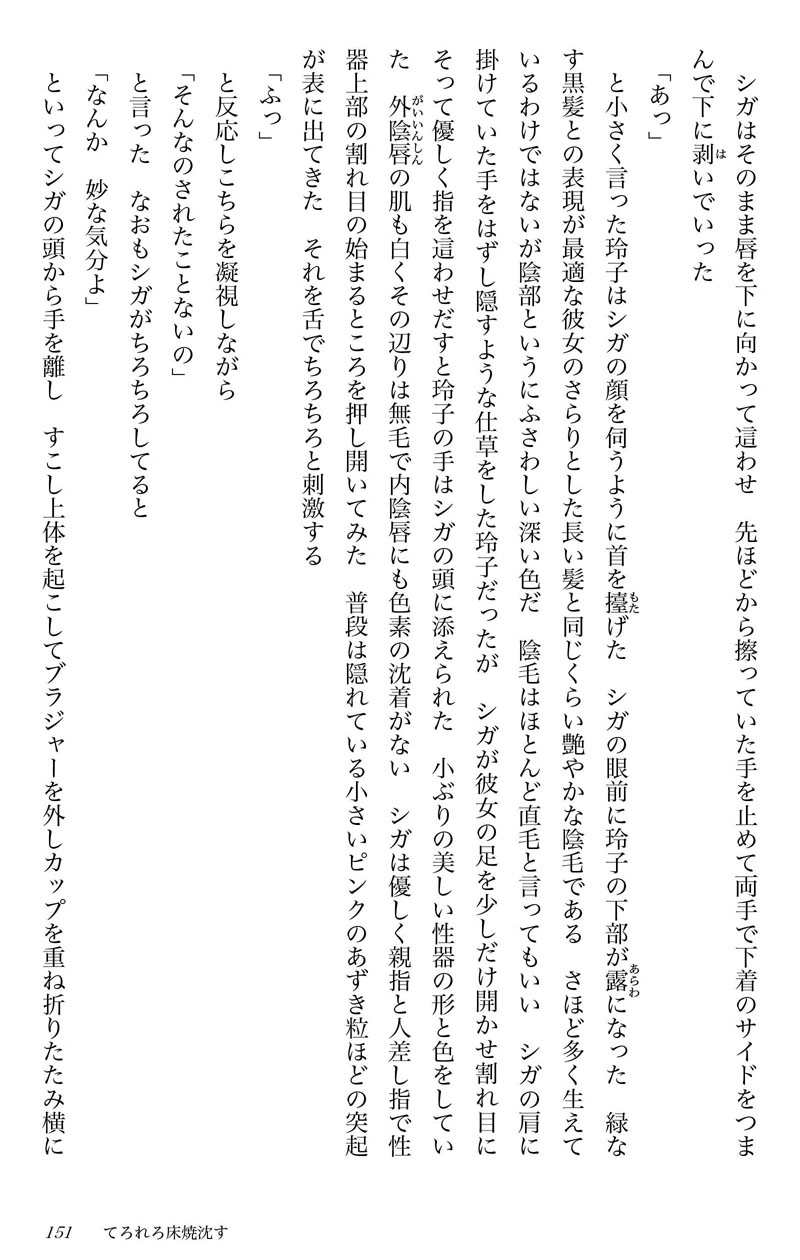 シガはそのまま唇を下に向かって這わせ　先ほどから擦っていた手を止めて両手で下着のサイドをつま
は
んで下に剥いでいった
「あっ」
もた　あらわ
と小さく言った玲子はシガの顔を伺うように首を擡げた　シガの眼前に玲子の下部が露になった　緑な
す黒髪との表現が最適な彼女のさらりとした長い髪と同じくらい艶やかな陰毛である　さほど多く生えて
いるわけではないが陰部というにふさわしい深い色だ　陰毛はほとんど直毛と言ってもいい　シガの肩に
掛けていた手をはずし隠すような仕草をした玲子だったが　シガが彼女の足を少しだけ開かせ割れ目に
そって優しく指を這わせだすと玲子の手はシガの頭に添えられた　小ぶりの美しい性器の形と色をしてい
がいいんしん
た　外陰唇の肌も白くその辺りは無毛で内陰唇にも色素の沈着がない　シガは優しく親指と人差し指で性
器上部の割れ目の始まるところを押し開いてみた　普段は隠れている小さいピンクのあずき粒ほどの突起
が表に出てきた　それを舌でちろちろと刺激する
「ふっ」
と反応しこちらを凝視しながら
「そんなのされたことないの」
と言った　なおもシガがちろちろしてると
「なんか　妙な気分よ」
といってシガの頭から手を離し　すこし上体を起こしてブラジャーを外しカップを重ね折りたたみ横に
151　てろれろ床焼沈す